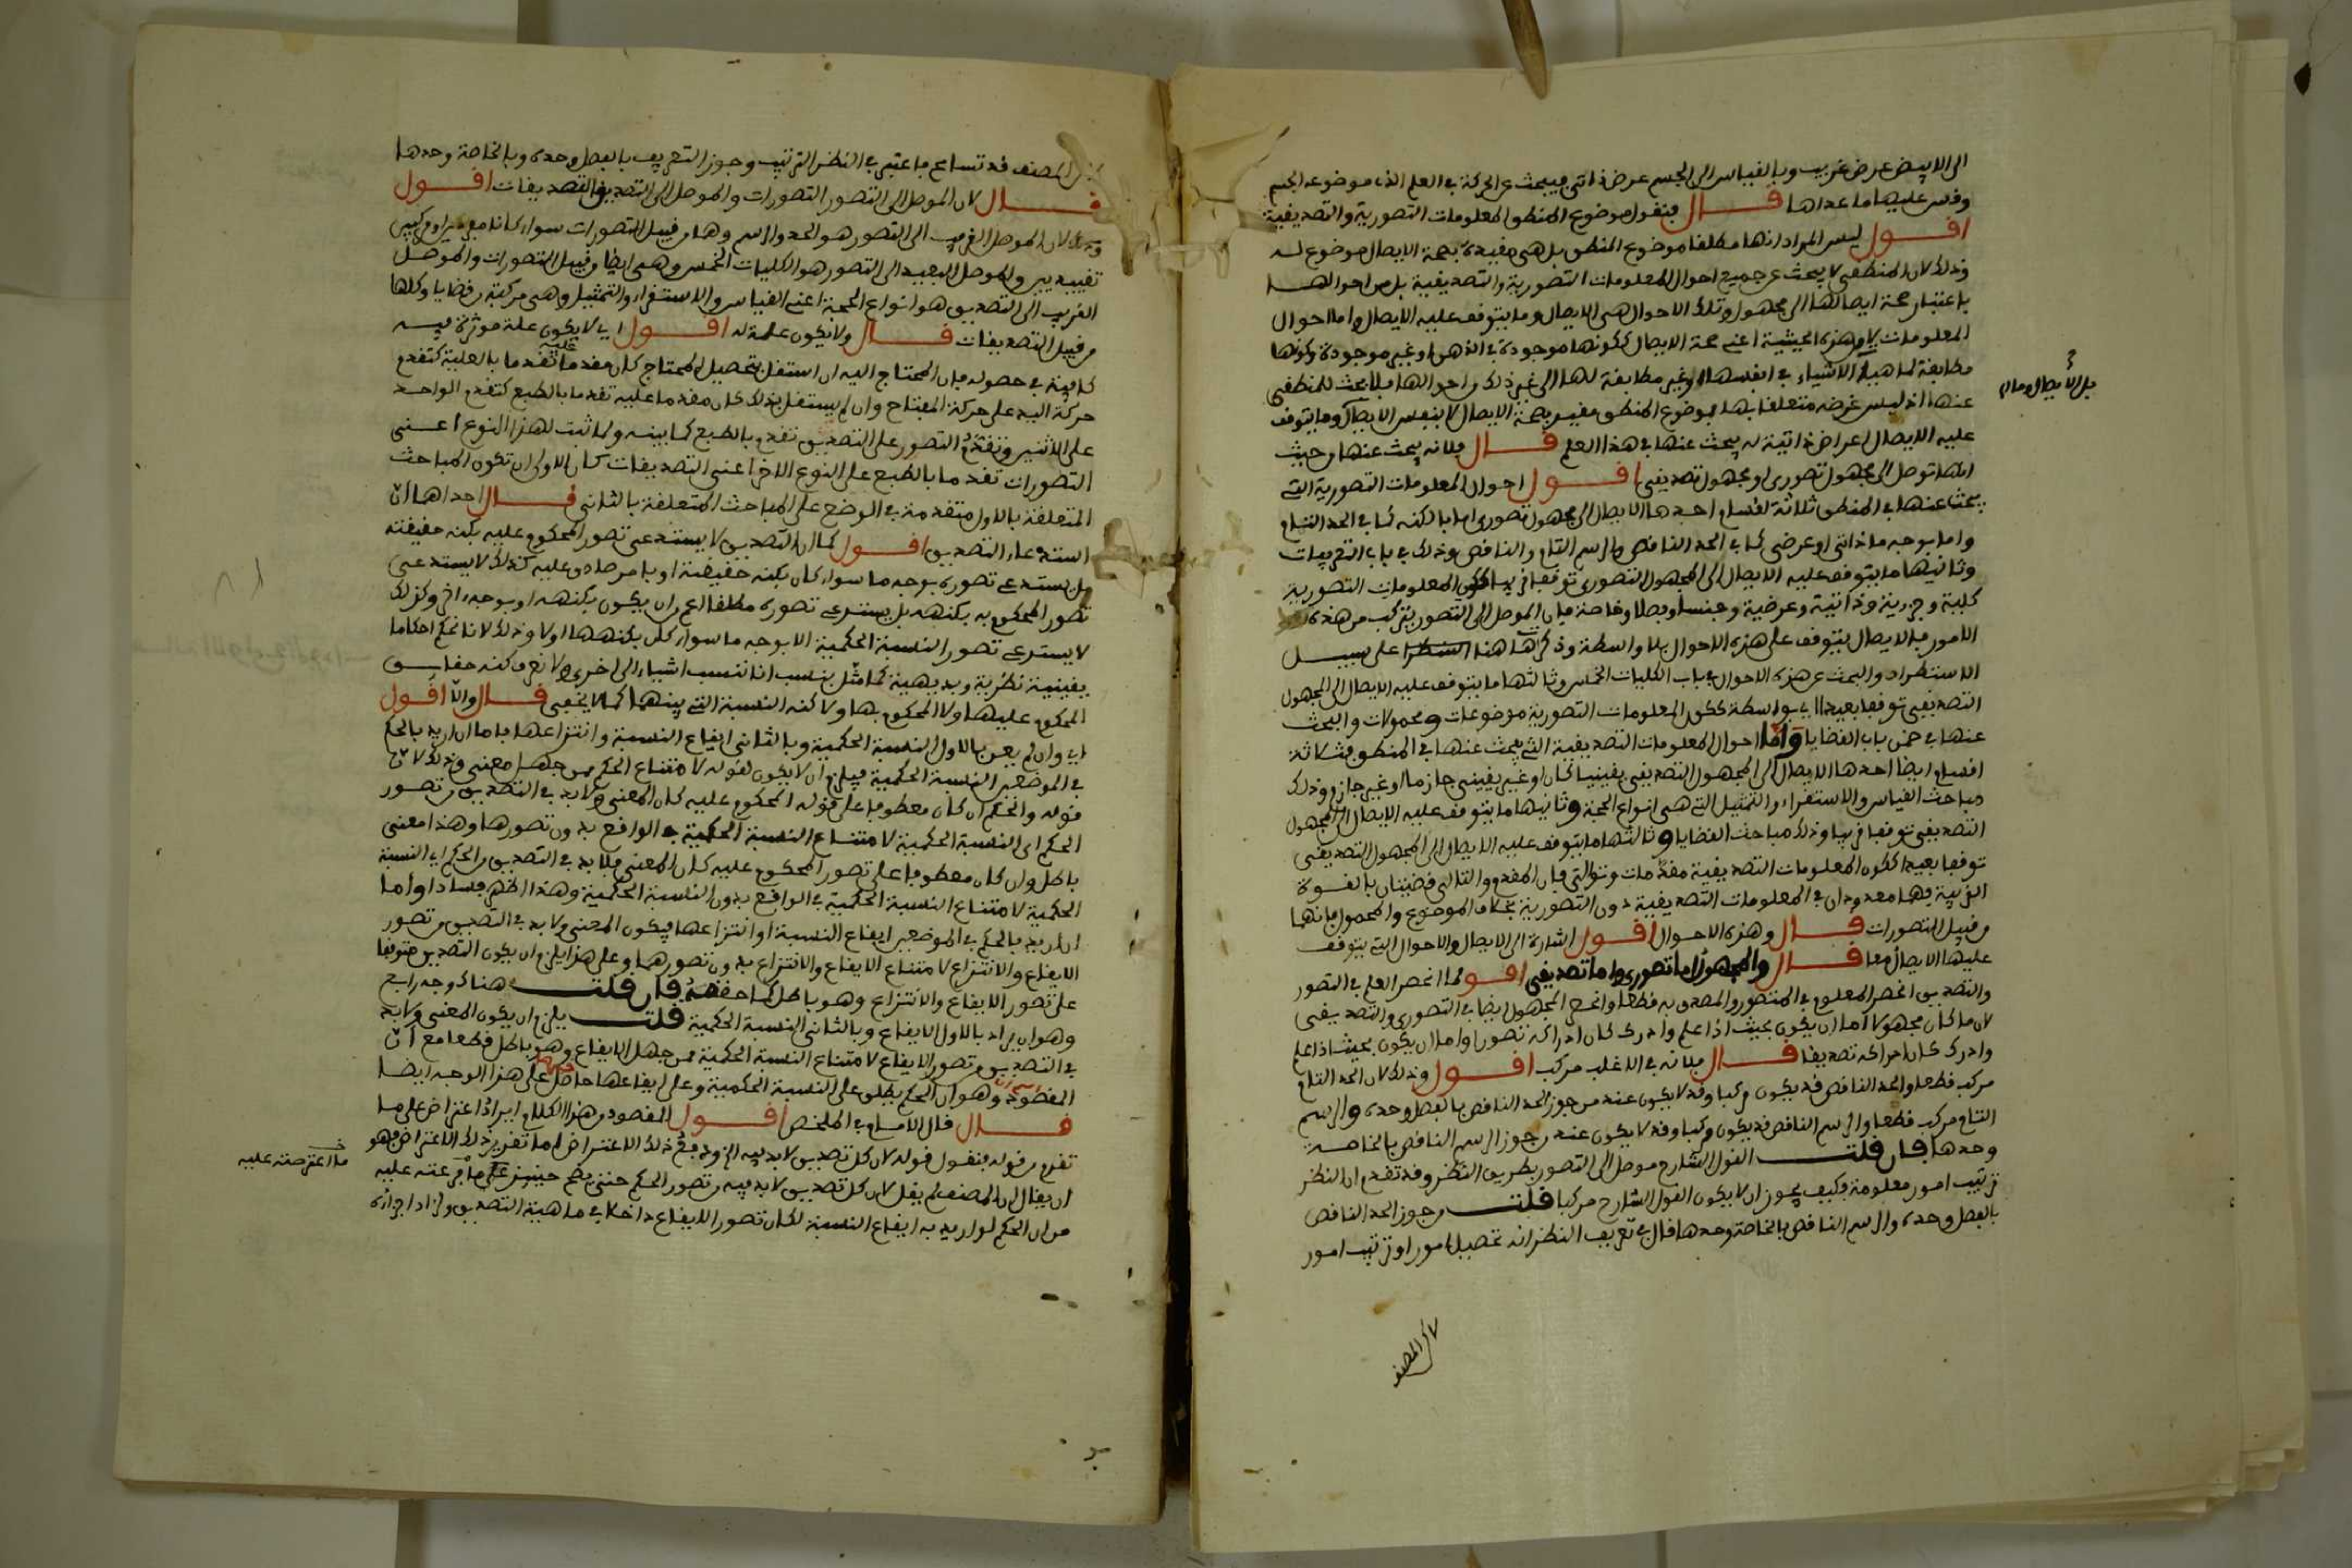 الى الابيض عرض غريب وبالقياس الى الجسم عرض ذاتي فيبحث عن الحركة في العلم الذي موضوعه الجسم
وقس عليها ما عداها قال فنقول موضوع المنطق المعلومات التصورية والتصديقية
اقول ليس المراد انها مطلقا موضوع المنطق بل هي مقيدة بصحة الايصال موضوع له
وذلك لان المنطقي لا يبحث عن جميع احوال المعلومات التصورية والتصديقية بل من احوالها
باعتبار صحة ايصالها الى مجهول وتلك الاحوال هي الايصال وما يتوقف عليه الايصال واما احوال
المعلومات لا من هذه الحيثية اعني صحة الايصال ككونها موجودة في الذهن او غير موجودة وكونها
مطابقة لماهيات الاشياء في انفسها او غير مطابقة لها الى غير ذلك من احوالها فلا بحث للمنطقي
عنها اذ ليس غرضه متعلقا بها فموضوع المنطق مقيد بصحة الايصال لا بنفس الايصال وما يتوقف
بل الايصال وما
عليه الايصال اعراض ذاتية له يبحث عنها في هذا العلم قال فلانه يبحث عنها من حيث
انها توصل الى مجهول تصوري او مجهول تصديقي اقول احوال المعلومات التصورية التي
يبحث عنها في المنطق ثلاثة اقسام احدها الايصال الى مجهول تصوري اما بالكنه كما في الحد التام
واما بوجه ما ذاتي او عرضي كما في الحد الناقص والرسم التام والناقص وذلك في باب التعريفات
وثانيها ما يتوقف عليه الايصال الى المجهول التصوري توقفا قريبا ككون المعلومات التصورية
كلية وجزئية وذاتية وعرضية وجنسا وفصلا وخاصة فان الموصل الى التصور يتركب من هذه
الامور فالايصال يتوقف على هذه الاحوال بلا واسطة وذكرها هاهنا على سبيل
الاستطراد والبحث عن هذه الاحوال في باب الكليات الخمس وثالثها ما يتوقف عليه الايصال الى المجهول
التصديقي توقفا بعيدا اي بواسطة ككون المعلومات التصورية موضوعات ومحمولات والبحث
عنها في ضمن باب القضايا واما احوال المعلومات التصديقية التي يبحث عنها في المنطق فثلاثة
اقسام ايضا احدها الايصال الى المجهول التصديقي يقينيا كان او غير يقيني جازما او غير جازم وذلك
مباحث القياس والاستقراء والتمثيل التي هي انواع الحجة وثانيها ما يتوقف عليه الايصال الى المجهول
التصديقي توقفا قريبا وذلك مباحث القضايا وثالثها ما يتوقف عليه الايصال الى المجهول التصديقي
توقفا بعيدا ككون المعلومات التصديقية مقدمات وتوالي فان المقدم والتالي قضيتان بالقوة
القريبة فهما معدودان في المعلومات التصديقية دون التصورية بخلاف الموضوع والمحمول فانهما
من قبيل التصورات قال وهذه الاحوال اقول اشارة الى الايصال والاحوال التي يتوقف
عليها الايصال معا قال والمجهول اما تصوري واما تصديقي اقول لما انحصر العلم في التصور
والتصديق انحصر المعلوم في المتصور والمصدق به قطعا وانحصر المجهول ايضا في التصوري والتصديقي
لان ما كان مجهولا اما ان يكون بحيث اذا علم وادرك كان ادراكه تصورا واما ان يكون بحيث اذا علم
وادرك كان ادراكه تصديقا قال فلانه في الاغلب مركب اقول وذلك لان الحد التام
مركب قطعا والحد الناقص قد يكون مركبا وقد لا يكون عند من جوز الحد الناقص بالفصل وحده والرسم
التام مركب قطعا والرسم الناقص قد يكون مركبا وقد لا يكون عند من جوز الرسم الناقص بالخاصة
وحدها فان قلت القول الشارح موصل الى التصور بطريق النظر وقد تقدم ان النظر
ترتيب امور معلومة فكيف يجوز ان لا يكون القول الشارح مركبا قلت من جوز الحد الناقص
بالفصل وحده والرسم الناقص بالخاصة وحدها قال في تعريف النظر انه تحصيل امور او ترتيب امور
لاكن المصنف
المصنف قد تسامح فاعتبر في النظر الترتيب وجوز التعريف بالفصل وحده وبالخاصة وحدها
قال لان الموصل الى التصور التصورات والموصل الى التصديق التصديقات اقول
وذلك لان الموصل القريب الى التصور هو الحد والرسم وهما من قبيل التصورات سواء كانا مفردين او مركبين
تقييديين والموصل البعيد الى التصور هو الكليات الخمس وهي ايضا من قبيل التصورات والموصل
القريب الى التصديق هو انواع الحجة اعني القياس والاستقراء والتمثيل وهي مركبة من قضايا وكلها
من قبيل التصديقات قال ولا يكون علة له اقول اي لا يكون علة مؤثرة فيه
كافية في حصوله فان المحتاج اليه ان استقل بتحصيل المحتاج كان مقدما عليه تقدما بالعلية كتقدم
حركة اليد على حركة المفتاح وان لم يستقل بذلك كان مقدما عليه تقدما بالطبع كتقدم الواحد
على الاثنين وتقدم التصور على التصديق تقدم بالطبع كما بينه ولما ثبت لهذا النوع اعني
التصورات تقدما بالطبع على النوع الاخر اعني التصديقات كان الاولى ان تكون المباحث
المتعلقة بالاول متقدمة في الوضع على المباحث المتعلقة بالثاني قال احداها ان
استدعاء التصديق اقول كما ان التصديق لا يستدعي تصور المحكوم عليه بكنه حقيقته
بل يستدعي تصوره بوجه ما سواء كان بكنه حقيقته او بامر صادق عليه كذلك لا يستدعي
تصور المحكوم به بكنهه بل يستدعي تصوره مطلقا اعم من ان يكون بكنهه او بوجه اخر وكذلك
لا يستدعي تصور النسبة الحكمية الا بوجه ما سواء كان بكنهها اولا وذلك لانا نحكم احكاما
يقينية نظرية وبديهية كما مثل بنسب انا ننسب اشياء الى اخرى ولا نعرف كنه حقايق
المحكوم عليها ولا المحكوم بها ولا كنه النسبة التي بينهما كما لا يخفى قال والا اقول
اي وان لم يعن بالاول النسبة الحكمية وبالثاني ايقاع النسبة وانتزاعها فاما ان اريد بالحكم
في الموضعين النسبة الحكمية فيلزم ان لا يكون لقوله لامتناع الحكم ممن جهل معنى وذلك لان
قوله والحكم ان كان معطوفا على قوله المحكوم عليه كان المعنى ولا بد في التصديق من تصور
الحكم اي النسبة الحكمية لامتناع النسبة الحكمية في الواقع بدون تصورها وهذا معنى
باطل وان كان معطوفا على تصور المحكوم عليه كان المعنى فلا بد في التصديق من الحكم اي النسبة
الحكمية لامتناع النسبة الحكمية في الواقع بدون النسبة الحكمية وهذا اظهر فسادا واما
ان اريد بالحكم في الموضعين ايقاع النسبة او انتزاعها فيكون المعنى ولا بد في التصديق من تصور
الايقاع والانتزاع لامتناع الايقاع والانتزاع بدون تصورهما وعلى هذا يلزم ان يكون التصديق متوقفا
على تصور الايقاع والانتزاع وهو باطل كما حققه فان قلت هناك وجه رابع
وهو ان يراد بالاول الايقاع وبالثاني النسبة الحكمية قلت يلزم ان يكون المعنى ولا بد
في التصديق من تصور الايقاع لامتناع النسبة الحكمية ممن جهل الايقاع وهو باطل قطعا مع ان
المقصود وهو ان الحكم يطلق على النسبة الحكمية وعلى ايقاعها حاصل على هذا الوجه ايضا
قال قال الامام في الملخص اقول المقصود من هذا الكلام ايراد اعتراض على ما
تفرع من قوله فنقول قوله لان كل تصديق لا بد فيه الخ ودفع ذلك الاعتراض اما تقرير ذلك الاعتراض فهو
ما اعترضته عليه
ان يقال ان المصنف لم يقل لان كل تصديق لا بد فيه من تصور الحكم حتى يصح حينئذ ما فرعته عليه
من ان الحكم لو اريد به ايقاع النسبة لكان تصور الايقاع داخلا في ماهية التصديق ولزاد اجزاؤه